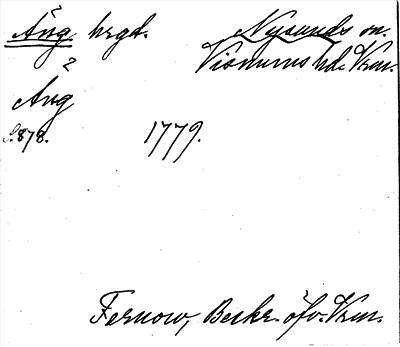 Äng hrgd. Nysunds sn.
Visnums hd. Vrm.
2
Äng
s. 878. 1779.
Fernow, Beskr. öfv. Vrm.